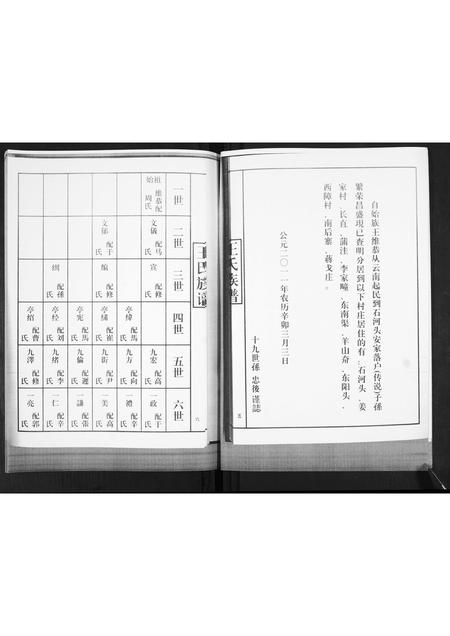 自始族王维恭从云南起民到石河头安家落户(传说)子孫
繁荣昌盛現已查明分居到以下村庄居住的有:石河头.姜
家村.长直.蒲洼.李家疃.东南渠.羊山夼.东阳头.
西障村.南后寨.蒋戈庄。
公元二〇一一年农历辛卯三月三日
十九世孫 忠後 谨誌
王氏族谱
五
王氏族谱
六
一世
始祖 维恭配周氏
二世
文儀 配马氏
文郁 配于氏
三世
宣 配高氏
编 配修氏
缉 配孫氏
四世
亭緯 配馬氏
亭繡 配崔氏
亭宪 配馬氏
亭经 配刘氏
亭绍 配曹氏
五世
九宏 配高氏
九方 配向氏
九街 配尹氏
九倫 配遲氏
九绪 配李氏
九澤 配修氏
六世
一政 配于氏
一禮 配辛氏
一美 配高氏
一謙 配張氏
一仁 配辛氏
一亮 配郭氏